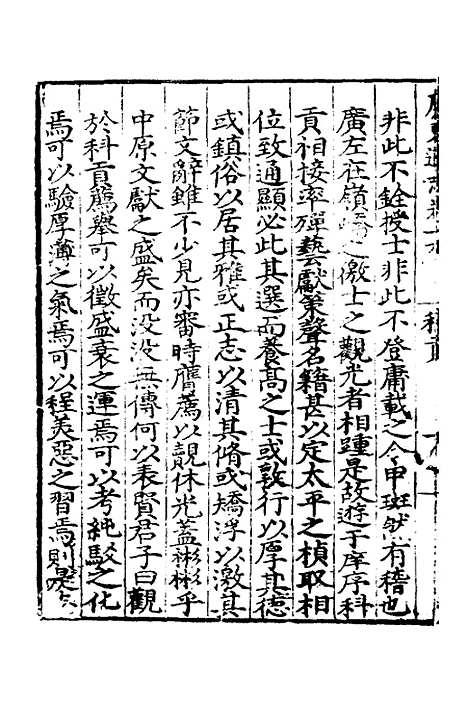 非此不銓授士非此不登庸載之令甲班然有稽也
廣左在嶺嶠之徼士之觀光者相踵是故遊于庠序科
貢相接率殫藝獻策聲名籍甚以定太平之楨取相
位致通顯必此其選而養高之士或敦行以厚其德
或鎮俗以居其雅或正志以清其脩或矯浮以激其
節文辭雖不少見亦審時膺薦以覩休光蓋彬彬乎
中原文獻之盛矣而没没無傳何以表賢君子曰觀
於科貢薦舉可以徵盛衰之運焉可以考純駁之化
焉可以驗厚薄之氣焉可以程美惡之習焉則是